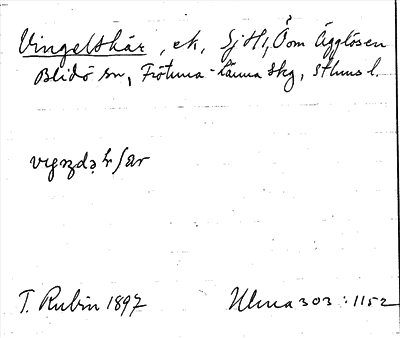 Vingelskär, ek, Sjökt, Ö om Ägglösen
Blidö sn, Frötuna-Länna skg, Sthlms l.
T. Rubin 1897 Ulma 303:1152